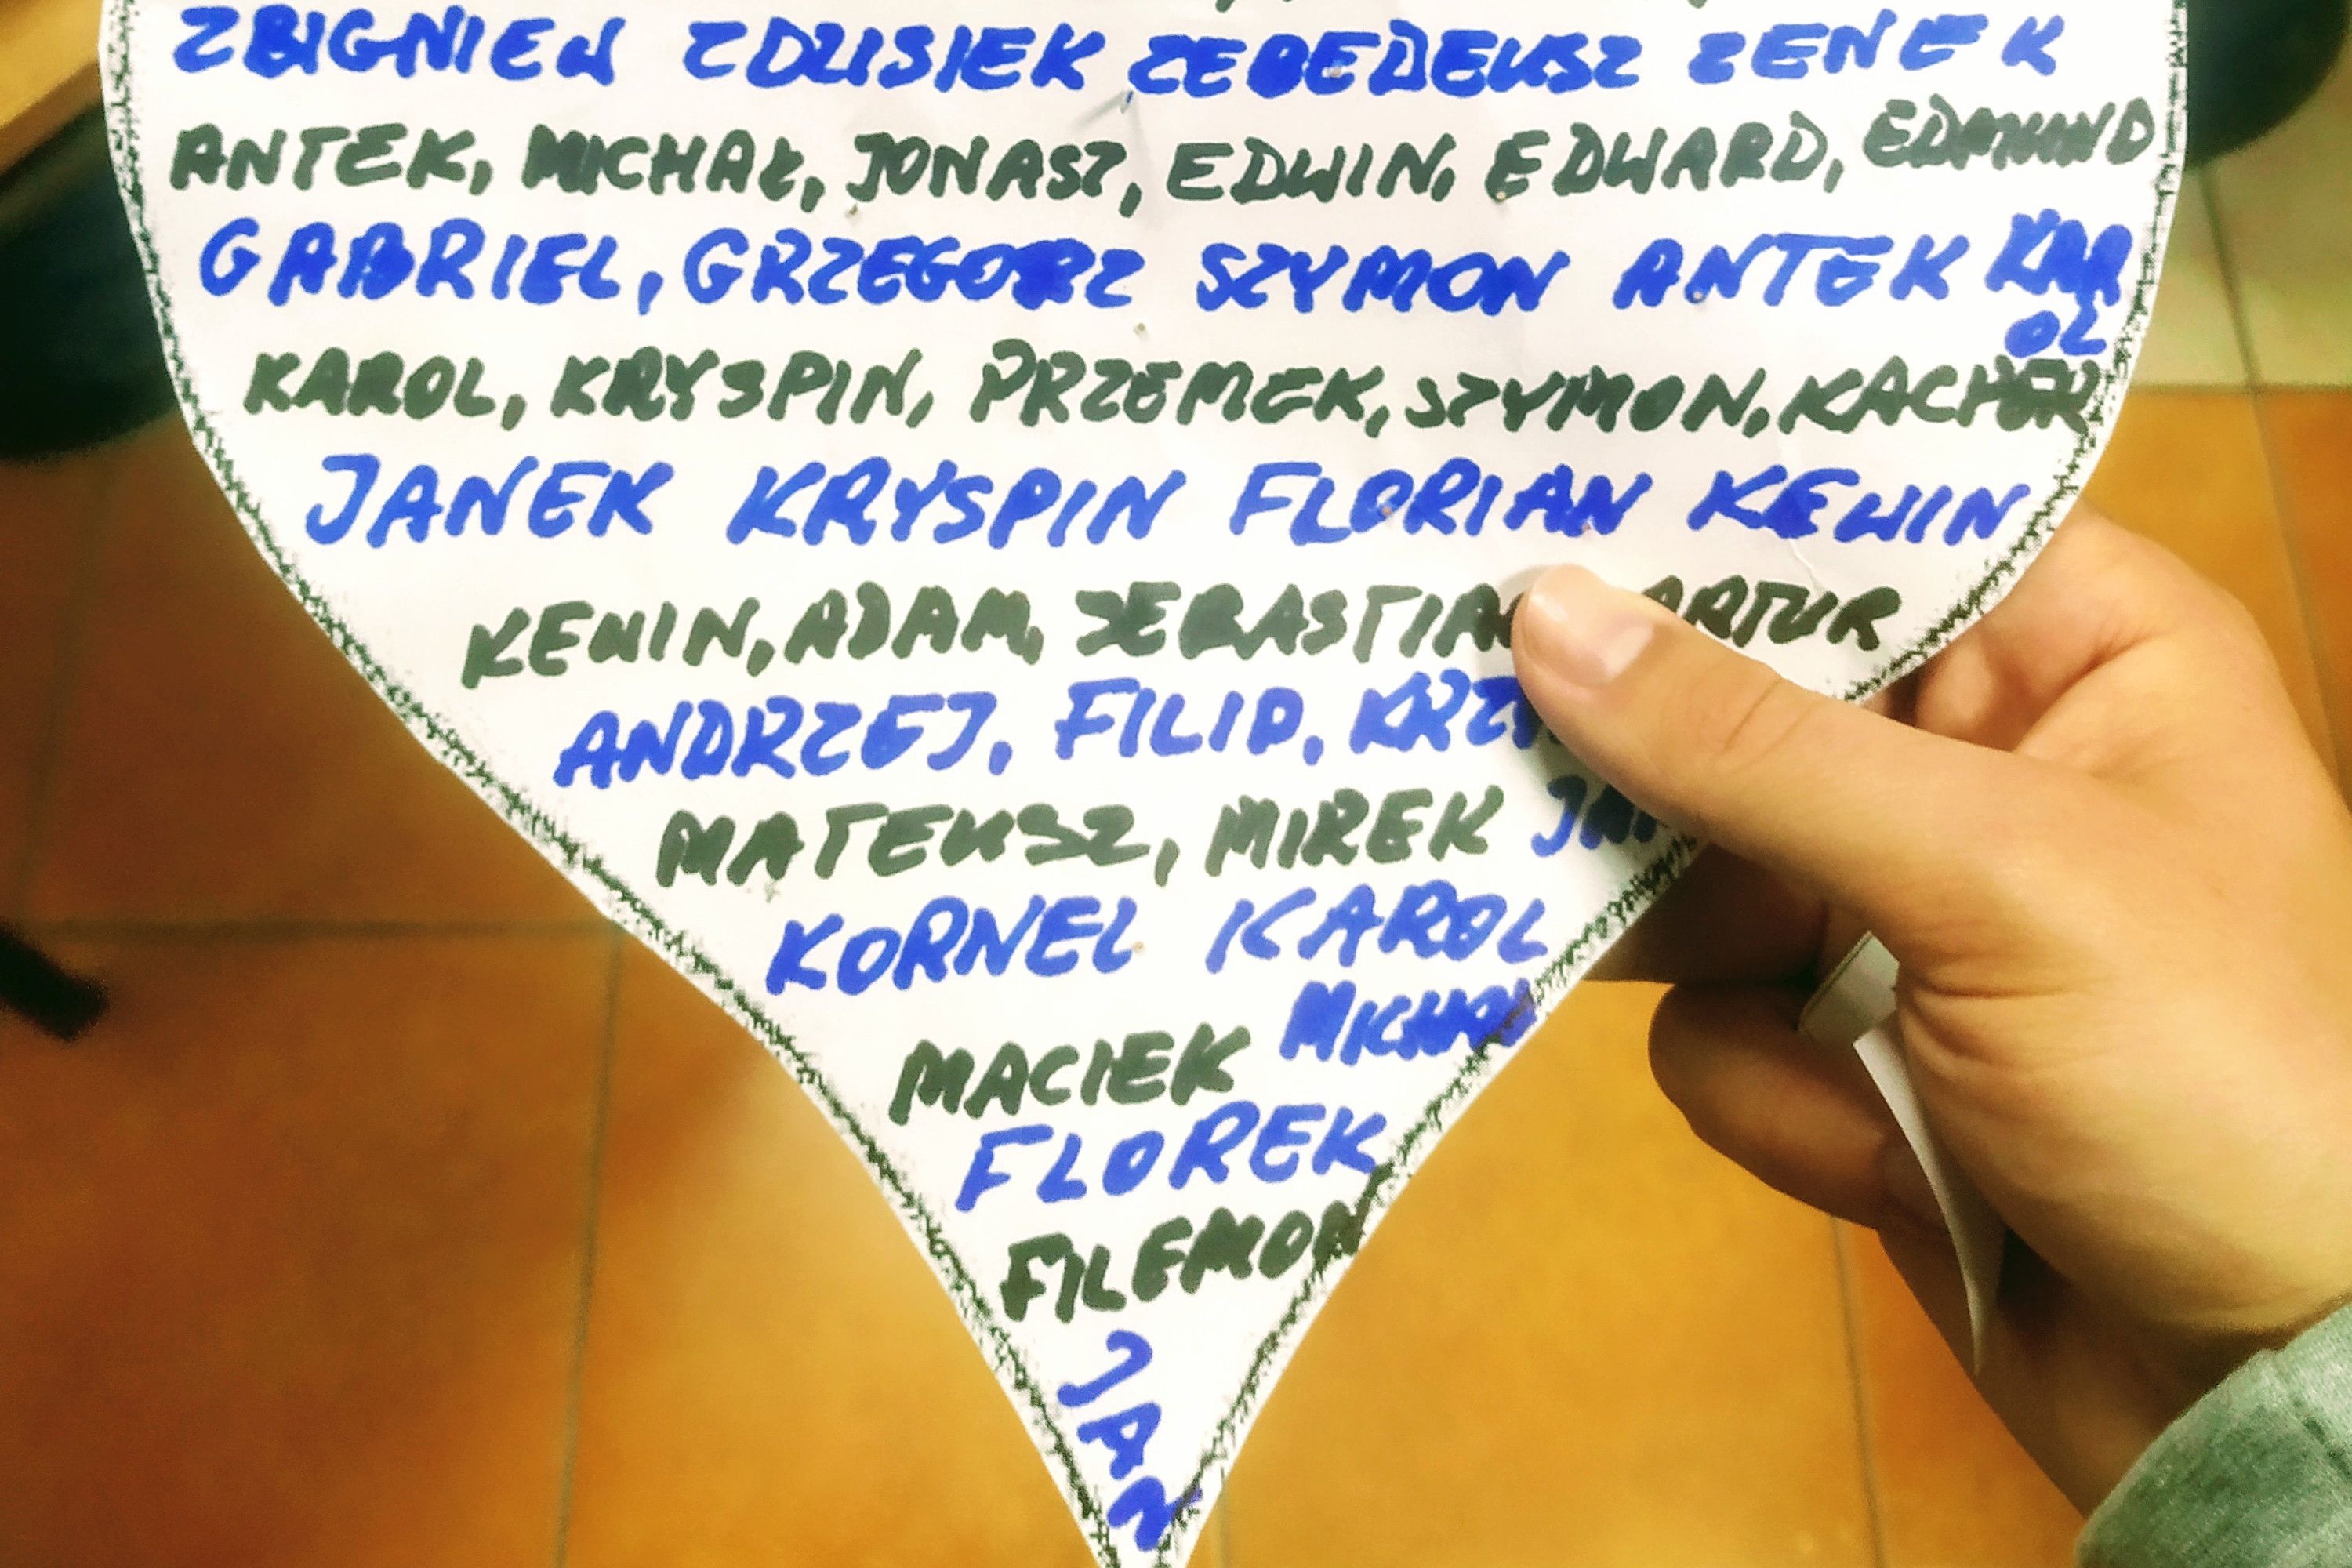 ZBIGNIEW ZDZISIEK ZEBEDEUSZ ZENEK
ANTEK, MICHAŁ, JONASZ, EDWIN, EDWARD, EDMUND
GABRIEL, GRZEGORZ SZYMON ANTEK KAR
OL
KAROL, KRYSPIN, PRZEMEK, SZYMON, KACPER
JANEK KRYSPIN FLORIAN KEWIN
KEWIN, ADAM, SEBASTIAN ARTUR
ANDRZEJ, FILIP, KRZY
MATEUSZ, MIREK JAN
KORNEL KAROL
MACIEK MICHAŁ
FLOREK
FILEMON
JAN